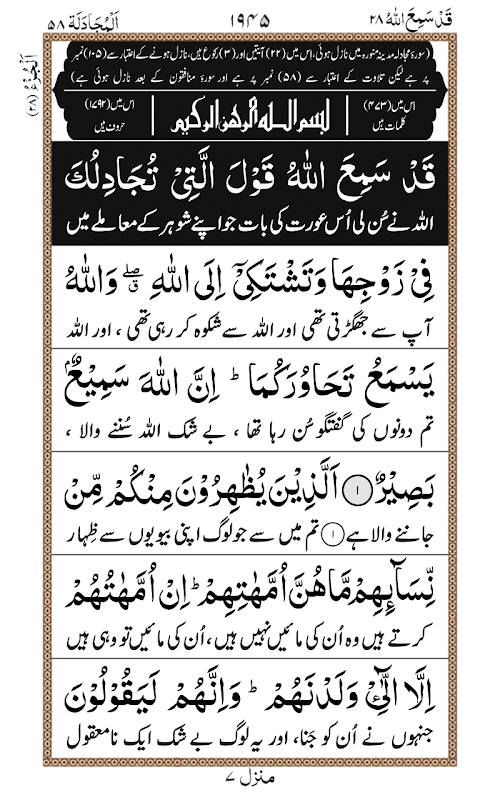 قَدْ سَمِعَ اللهُ ۲۸
۱۹۴۵
اَلْمُجَادَلَة ۵۸
اَلْجُزْءُ (۲۸)
(سورۂ مجادلہ مدینہ منورہ میں نازل ہوئی، اس میں (۲۲) آیتیں اور (۳) رکوع ہیں، نازل ہونے کے اعتبار سے (۱۰۵) نمبر
پر ہے لیکن تلاوت کے اعتبار سے (۵۸) نمبر پر ہے اور سورۂ منافقون کے بعد نازل ہوئی ہے)
اس میں (۴۷۳) کلمات ہیں
بسم الله الرحمن الرحيم
اس میں (۱۷۹۲) حروف ہیں
قَدْ سَمِعَ اللهُ قَوْلَ الَّتِیْ تُجَادِلُكَ
اللہ نے سُن لی اُس عورت کی بات جو اپنے شوہر کے معاملے میں
فِیْ زَوْجِهَا وَتَشْتَكِیْۤ اِلَی اللهِ ۖق وَاللهُ
آپ سے جھگڑتی تھی اور اللہ سے شکوہ کر رہی تھی ، اور اللہ
یَسْمَعُ تَحَاوُرَكُمَا ؕ اِنَّ اللهَ سَمِیْعٌۢ
تم دونوں کی گفتگو سُن رہا تھا ، بے شک اللہ سُننے والا ،
بَصِیْرٌ ۱ اَلَّذِیْنَ یُظٰهِرُوْنَ مِنْكُمْ مِّنْ
جاننے والا ہے ۱ تم میں سے جو لوگ اپنی بیویوں سے ظِہار
نِّسَآئِهِمْ مَّا هُنَّ اُمَّهٰتِهِمْ ؕ اِنْ اُمَّهٰتُهُمْ
کرتے ہیں وہ اُن کی مائیں نہیں ہیں، اُن کی مائیں تو وہی ہیں
اِلَّا الّٰٓـِٔیْ وَلَدْنَهُمْ ؕ وَاِنَّهُمْ لَیَقُوْلُوْنَ
جنہوں نے اُن کو جَنا، اور یہ لوگ بے شک ایک نامعقول
منزل ۷